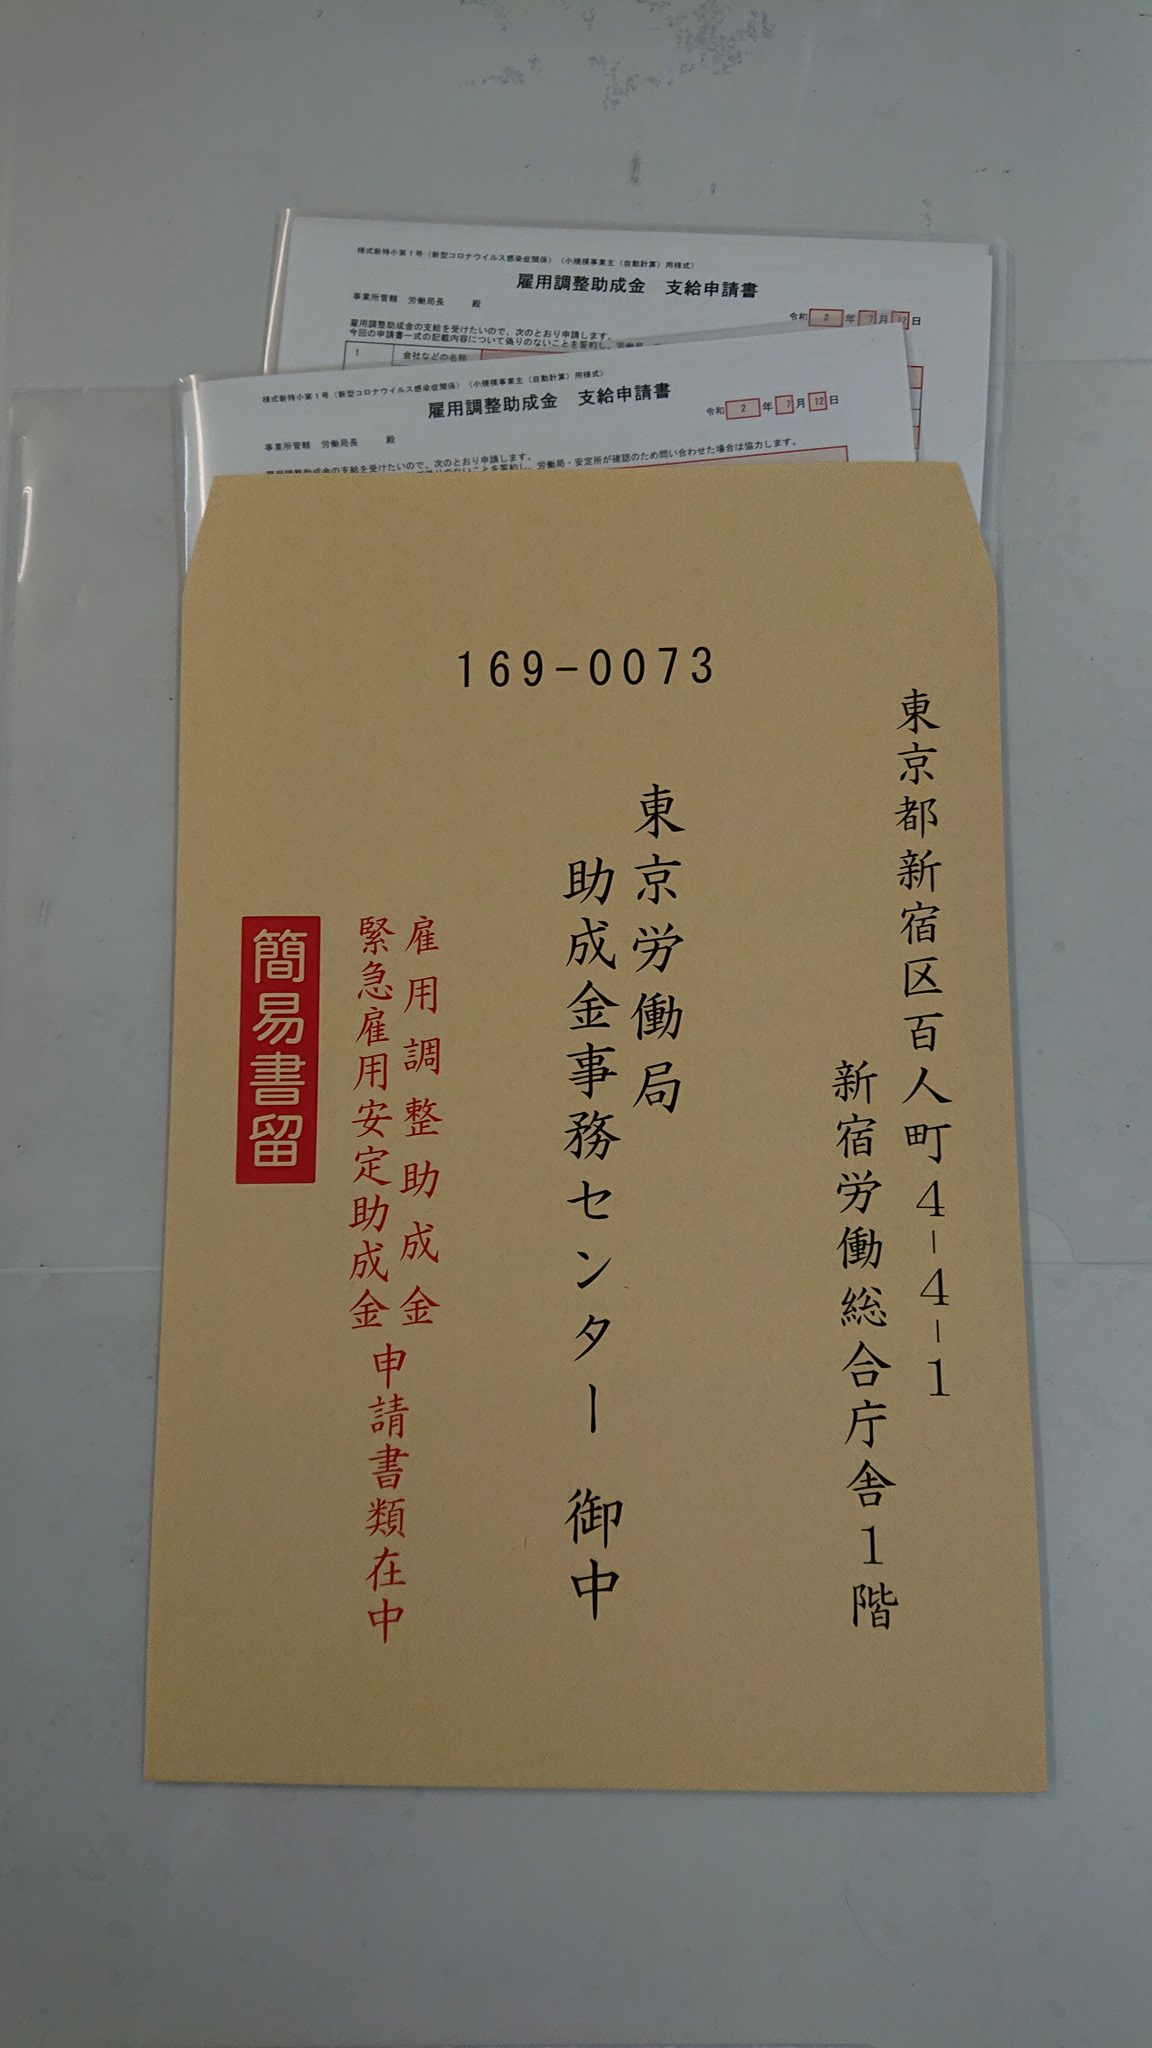 様式新特小第1号(新型コロナウイルス感染症関係)(小規模事業主(自動計算)用様式)
雇用調整助成金 支給申請書
事業所管轄 労働局長 殿
令和 2 年 7 月 12 日
雇用調整助成金の支給を受けたいので、次のとおり申請します。
今回の申請書一式の記載内容について偽りのないことを誓約し、労働局
1 会社などの名称
様式新特小第1号(新型コロナウイルス感染症関係)(小規模事業主(自動計算)用様式)
雇用調整助成金 支給申請書
令和 2 年 7 月 12 日
事業所管轄 労働局長 殿
雇用調整助成金の支給を受けたいので、次のとおり申請します。
のないことを誓約し、労働局・安定所が確認のため問い合わせた場合は協力します。
169-0073
東京都新宿区百人町4-4-1
新宿労働総合庁舎1階
東京労働局
助成金事務センター 御中
雇用調整助成金
緊急雇用安定助成金
申請書類在中
簡易書留